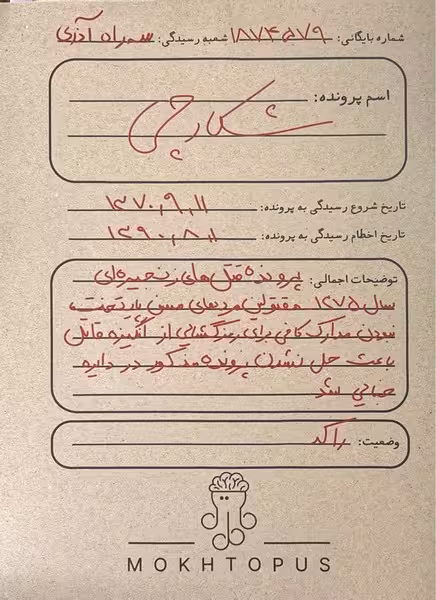 شماره بایگانی: ۱۸۷۴۵۷۹ شعبه رسیدگی: سمراه آذری
اسم پرونده:
شکارچی
تاریخ شروع رسیدگی به پرونده: ۱۳۷۰,۹,۱۱
تاریخ اخطام رسیدگی به پرونده: ۱۳۹۰,۸,۱
توضیحات اجمالی: پرونده قتل های زنجیره ای
سال ۱۲۷۵ مقتولین مردهای مسن پایتخت،
نبودن مدارک کافی برای رمزگشایی از انگیزه قاتل
باعث حل نشدن پرونده مذکور در دایره
جنایی شد
وضعیت: راکد
MOKHTOPUS